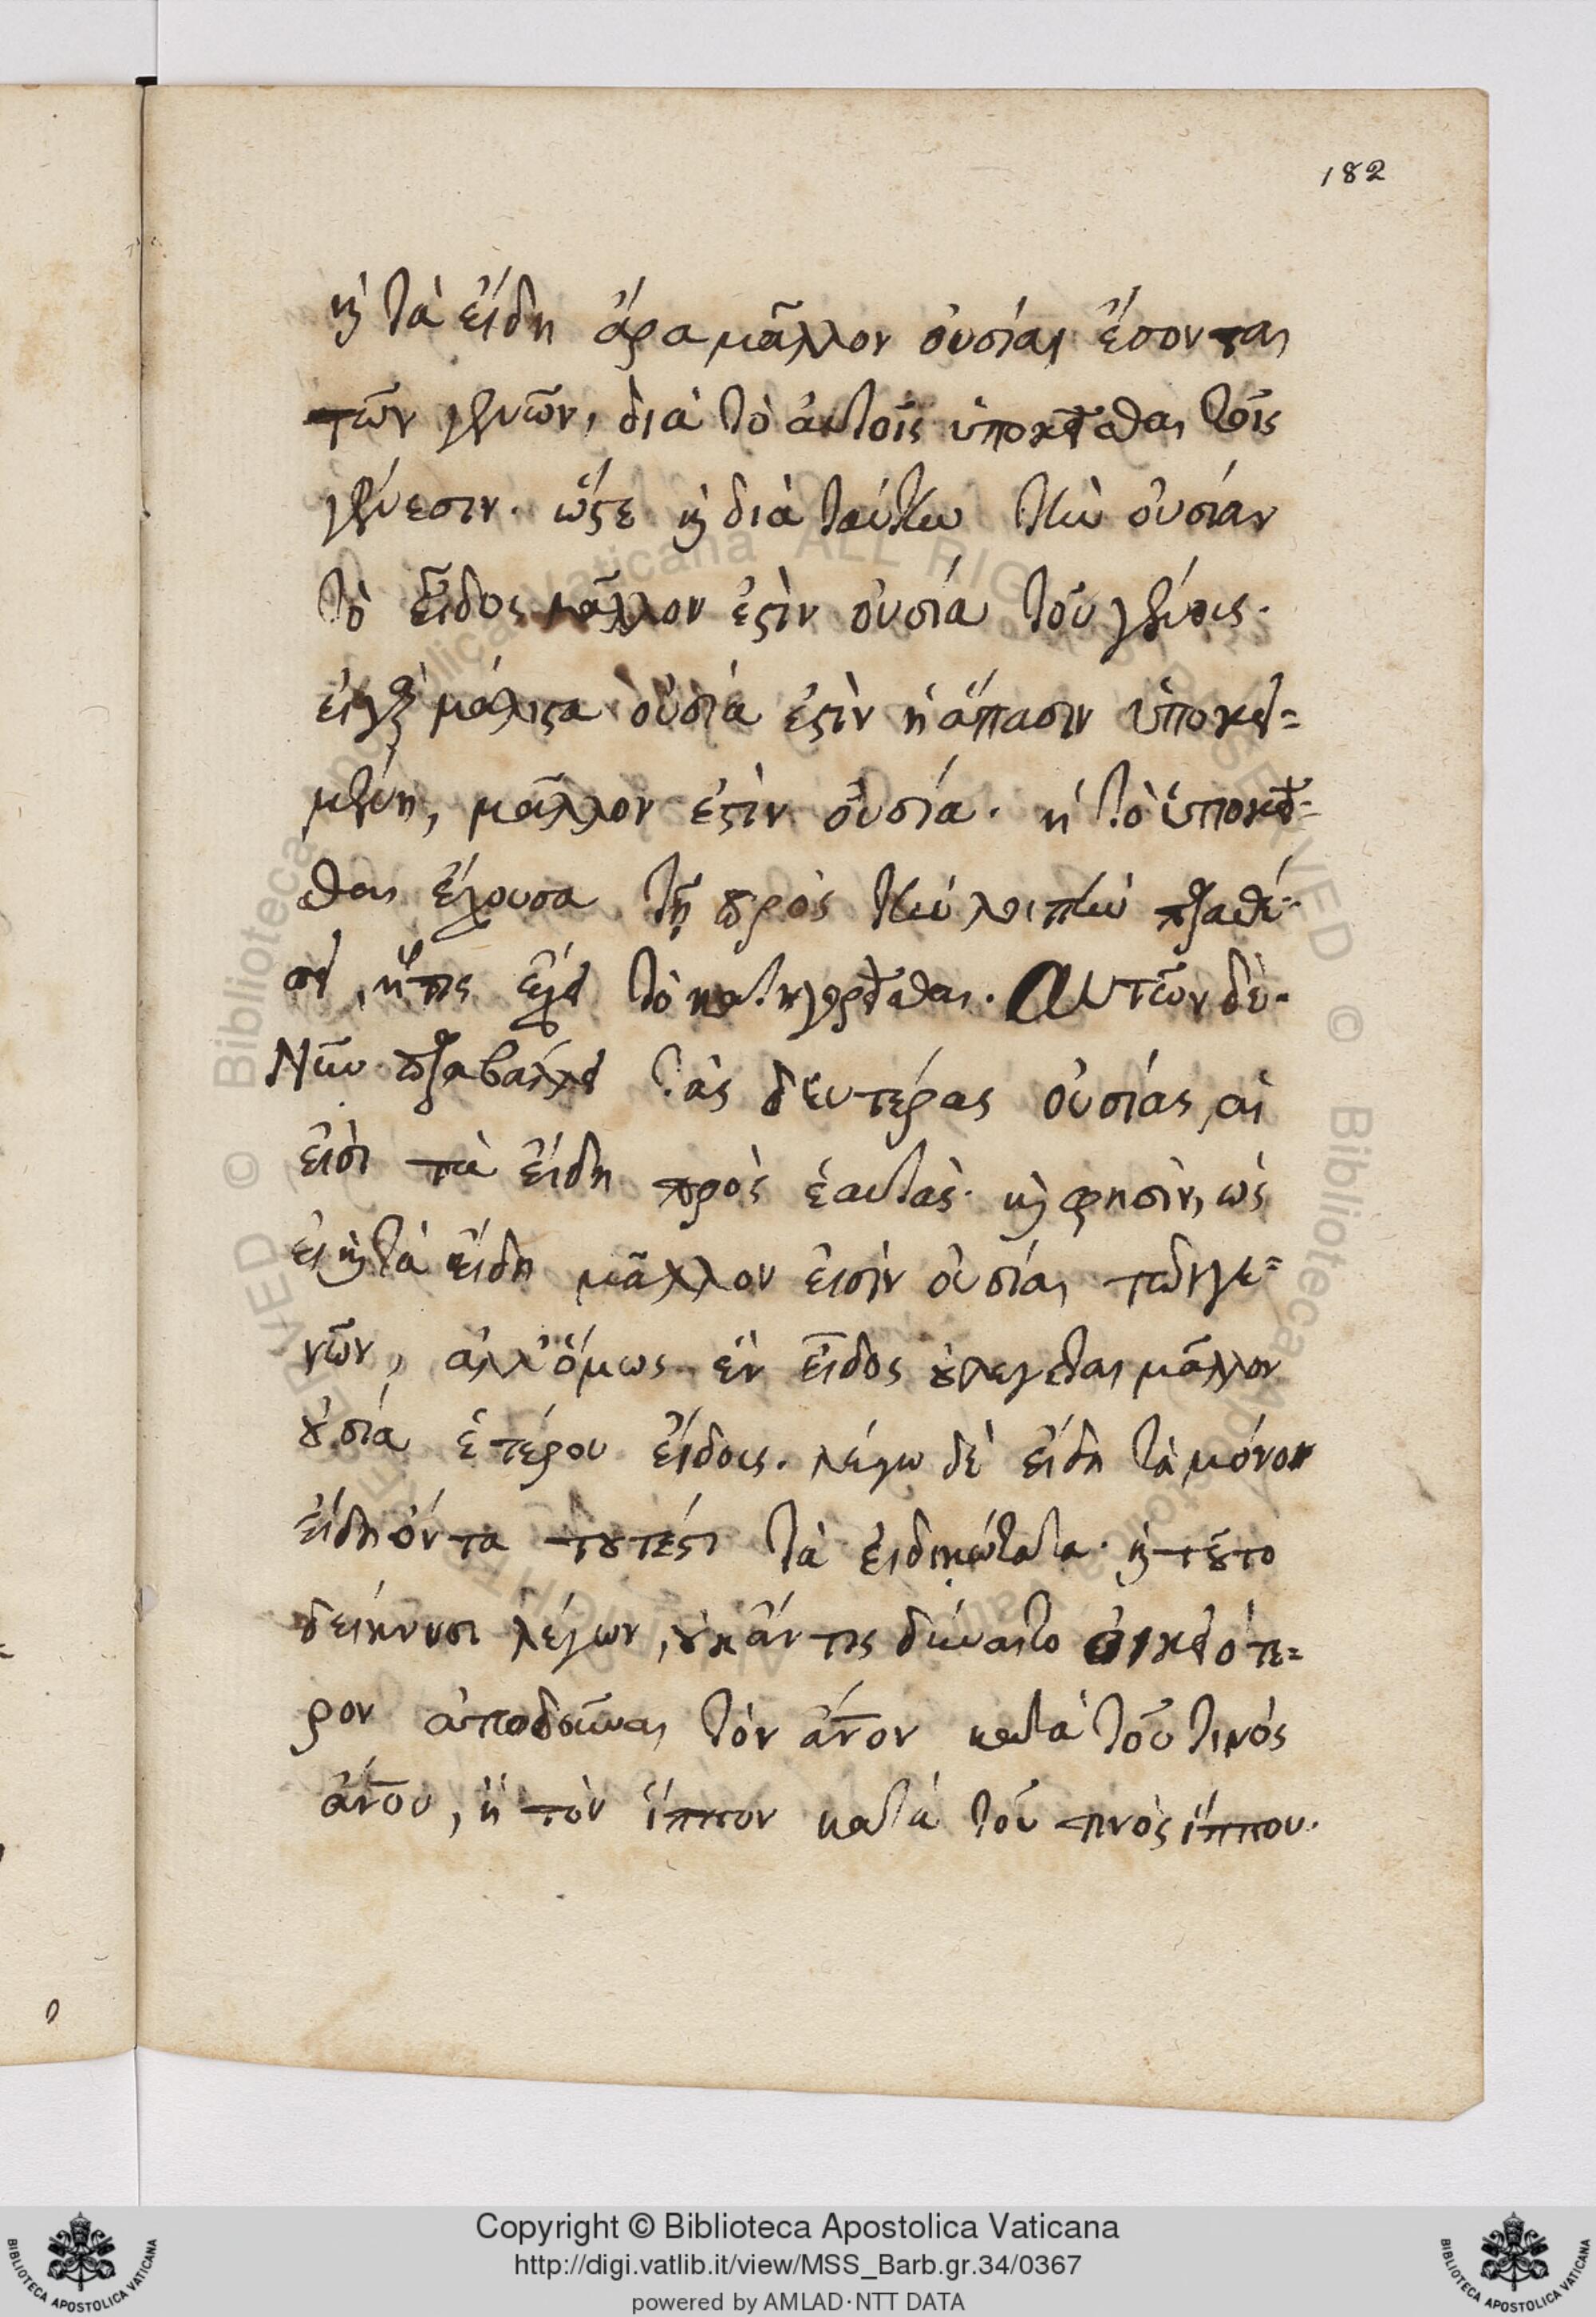 182
καὶ τὰ εἴδη ἄρα μᾶλλον οὐσίαι ἔσονται
τῶν γενῶν, διὰ τὸ αὐτοῖς ὑποκεῖσθαι τοῖς
γένεσιν. ὥστε καὶ διὰ ταύτην τὴν οὐσίαν
τὸ εἶδος μᾶλλον ἐστὶν οὐσία τοῦ γένους.
εἰ γὰρ μάλιστα οὐσία ἐστὶν ἡ ἅπασιν ὑποκει=
μένη, μᾶλλον ἐστὶν οὐσία. ἡ τὸ ὑποκεῖ=
σθαι ἔχουσα τῇ πρὸς τὴν λοιπὴν παραθέ=
σει, ἥτις ἔχει τὸ κατηγορεῖσθαι. Αυτῶν δὲ.
Νῦν παραβάλλει τὰς δευτέρας οὐσίας, αἵ
εἰσι τὰ εἴδη πρὸς ἑαυτάς. καὶ φησὶν, ὡς
εἰ καὶ τὰ εἴδη μᾶλλον εἰσὶν οὐσίαι τῶν γε=
νῶν, ἀλλ' ὅμως ἓν εἶδος οὐ λέγεται μᾶλλον
οὐσία ἑτέρου εἴδους. λέγω δὲ εἴδη τὰ μόνον
εἴδη ὄντα τουτέστι τὰ εἰδικώτατα. καὶ τοῦτο
δείκνυσι λέγων, οὐκ ἄν τις δύναιτο οἰκειότε=
ρον ἀποδοῦναι τὸν ἄνον κατὰ τοῦ τινός
ἄνου, ἢ τὸν ἵππον κατὰ τοῦ τινὸς ἵππου.
Copyright © Biblioteca Apostolica Vaticana
http://digi.vatlib.it/view/MSS_Barb.gr.34/0367
powered by AMLAD·NTT DATA